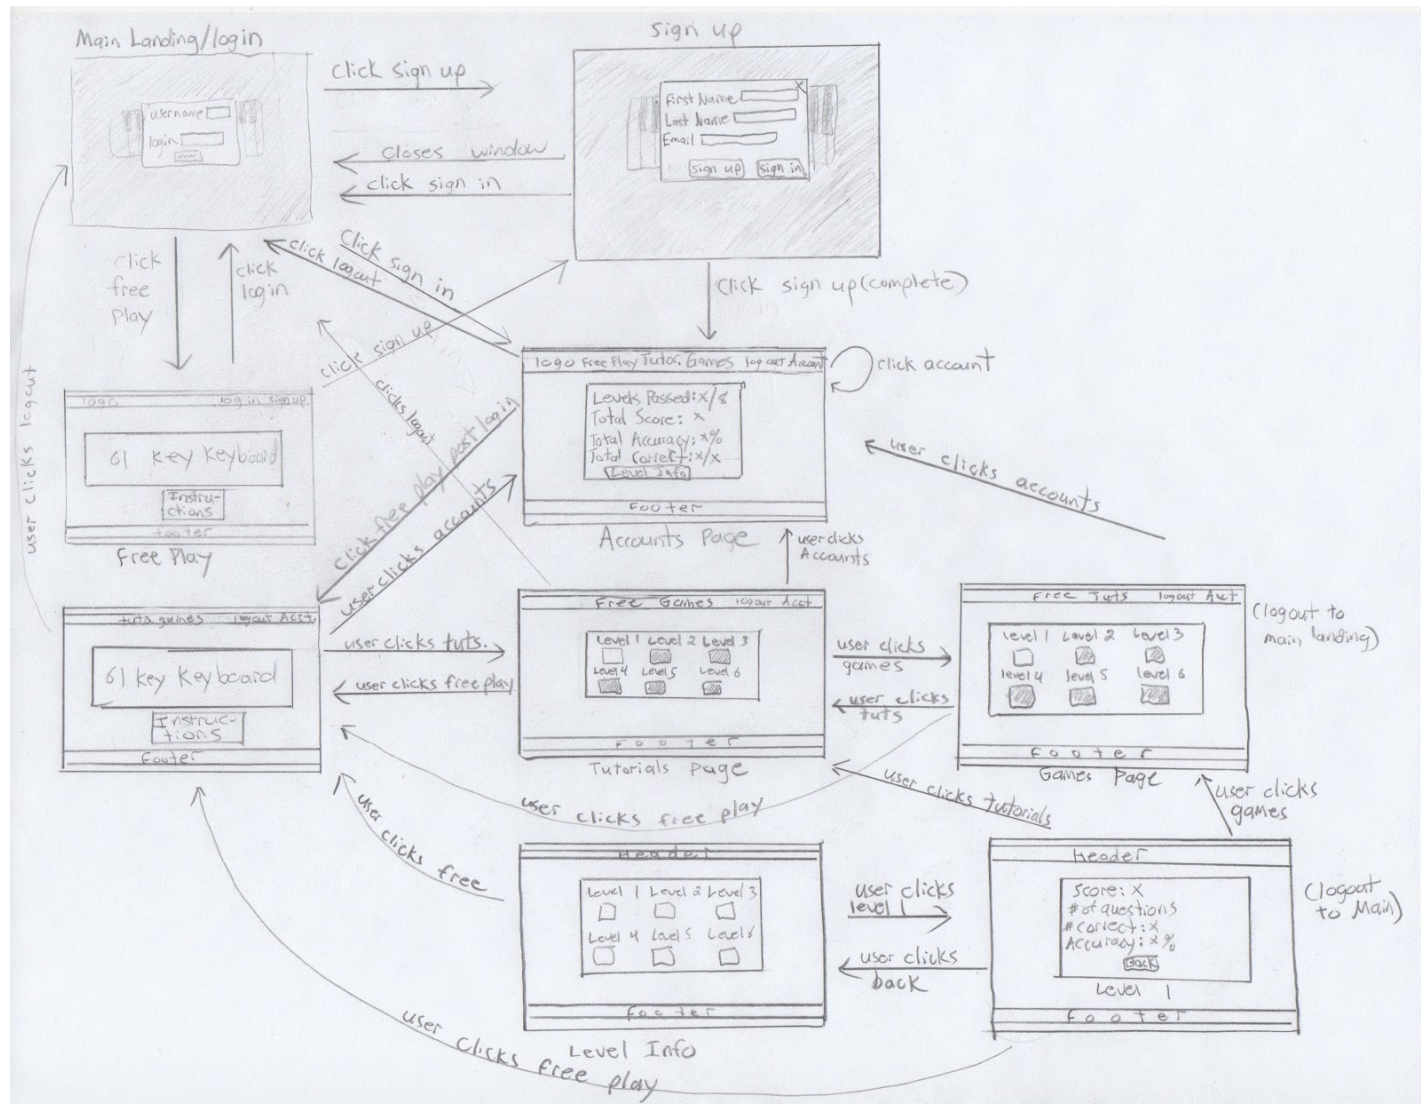 Main Landing/login
username
login
click sign up
closes window
click sign in
sign up
X
First Name
Last Name
Email
sign up sign in
click free play
click login
click logout
click sign in
click sign up
click sign up (complete)
logo log in sign up
61 key Keyboard
Instru-
ctions
footer
Free Play
logo Free Play Tutor. Games logout Account
Levels Passed: x/8
Total Score: x
Total Accuracy: x%
Total Correct: x/x
Level Info
Footer
Accounts Page
click account
user clicks logout
clicks logout
click free play post login
user clicks accounts
user clicks
Accounts
user clicks accounts
tuts games logout Acct.
61 key Keyboard
Instruc-
tions
Footer
user clicks tuts.
user clicks free play
Free Games logout Acct
Level 1 Level 2 Level 3
Level 4 Level 5 Level 6
Footer
Tutorials Page
user clicks
games
user clicks
tuts
Free Tuts logout Acct
Level 1 Level 2 Level 3
level 4 level 5 level 6
Footer
Games Page
(logout to
main landing)
user clicks free play
user clicks tutorials
user clicks
games
user clicks free
Header
Level 1 Level 2 Level 3
Level 4 Level 5 Level 6
Footer
Level Info
user clicks
level 1
user clicks
back
Header
Score: x
# of questions
# correct: x
Accuracy: x%
Back
Level 1
Footer
(logout
to Main)
user clicks free play